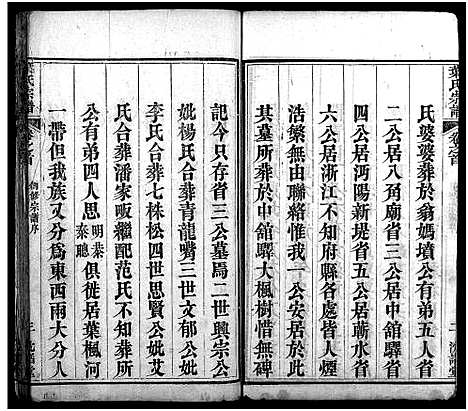 葉氏宗譜
卷之首
二
氏婆婆葬於翁媽墳公有弟五人省
二公居八角廟省三公居中舘驛省
四公居沔陽新堤省五公居蘄水省
六公居浙江不知府縣各處人煙
浩繁無由聯絡惟我一公安居於此
其墓所葬於中舘驛大楓樹惜無碑
記今只存省三公墓爲二世興宗公
妣楊氏合葬青龍嘴三世文郁公妣
李氏合葬七株松四世思賢公妣艾
氏合葬潘家畈繼配范氏不知葬所
公有弟四人思明恭泰聰俱徙居葉楓河
一帶但我族又分爲東西兩大分人
葉氏宗譜
卷之首
創修宗譜序
三